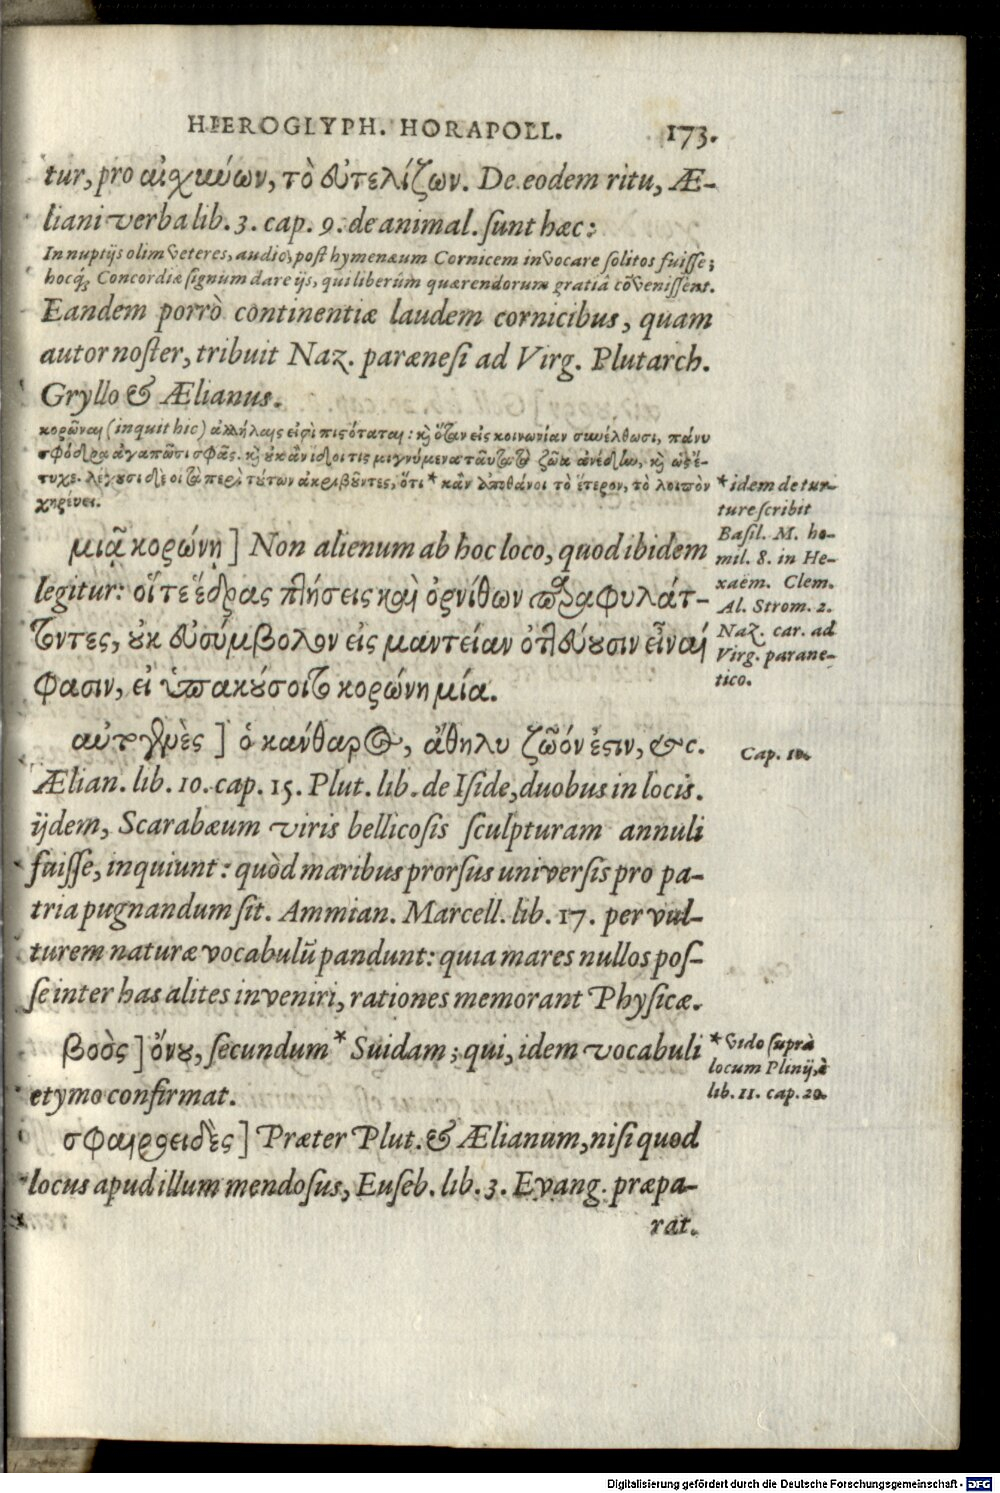 HIEROGLYPH. HORAPOLL. 173.
tur, pro αἰσχυνέων, τὸ εὐτελίζων. De eodem ritu, Æ-
liani verba lib. 3. cap. 9. de animal. sunt hæc:
In nuptijs olim veteres, audio, post hymenæum Cornicem invocare solitos fuisse;
hocq́; Concordiæ signum dare ijs, qui liberûm quærendorum gratiâ cõvenissent.
Eandem porrò continentiæ laudem cornicibus, quam
autor noster, tribuit Naz. parænesi ad Virg. Plutarch.
Gryllo & Ælianus.
κορῶναι (inquit hic) ἀλλήλαις εἰσὶ πιστόταται: κỳ ὅταν εἰς κοινωνίαν συνέλθωσι, πάνυ
σφόδρα ἀγαπῶσι σφᾶς. κỳ οὐκ ἂν ἴδοι τις μιγνύμενα ταῦτα τὰ ζῶα ἀνέδην, κỳ ὡς ἔ-
τυχε. λέγουσι δὲ οἱ τὰ περὶ τούτων ἀκριβοῦντες, ὅτι * κἂν ἀποθάνοι τὸ ἕτερον, τὸ λοιπὸν
χηρεύει.
* idem de tur-
ture scribit
Basil. M. ho-
mil. 8. in He-
xaëm. Clem.
Al. Strom. 2.
Naz. car. ad
Virg. parane-
tico.
μιᾷ κορώνῃ] Non alienum ab hoc loco, quod ibidem
legitur: οἵ τε ἕδρας πτήσεις καὶ ὀρνίθων παραφυλάτ-
τοντες, οὐκ εὐσύμβολον εἰς μαντείαν ὀπτεύουσιν εἶναί
φασιν, εἰ ὑπακούσοιτο κορώνη μία.
αὐτογενὲς] ὁ κάνθαρος, ἄθηλυ ζῶόν ἐστιν, &c.
Cap. 10.
Ælian. lib. 10. cap. 15. Plut. lib. de Iside, duobus in locis.
ijdem, Scarabæum viris bellicosis sculpturam annuli
fuisse, inquiunt: quòd maribus prorsus universis pro pa-
tria pugnandum sit. Ammian. Marcell. lib. 17. per vul-
turem naturæ vocabulũ pandunt: quia mares nullos pos-
se inter has alites inveniri, rationes memorant Physicæ.
βοὸς] ὄνου, secundum * Suidam; qui, idem vocabuli
etymo confirmat.
* Vide suprà
locum Plinij, è
lib. 11. cap. 20.
σφαιροειδὲς] Præter Plut. & Ælianum, nisi quod
locus apud illum mendosus, Euseb. lib. 3. Evang. præpa-
rat.
Digitalisierung gefördert durch die Deutsche Forschungsgemeinschaft - DFG